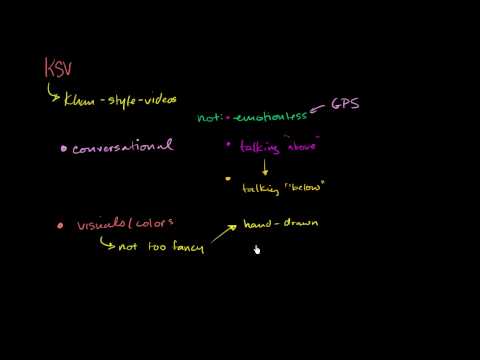 KSV
Khan-style-videos
GPS
not: • emotionless
• conversational
• talking "above"
• talking "below"
• visuals/colors
hand-drawn
not too fancy